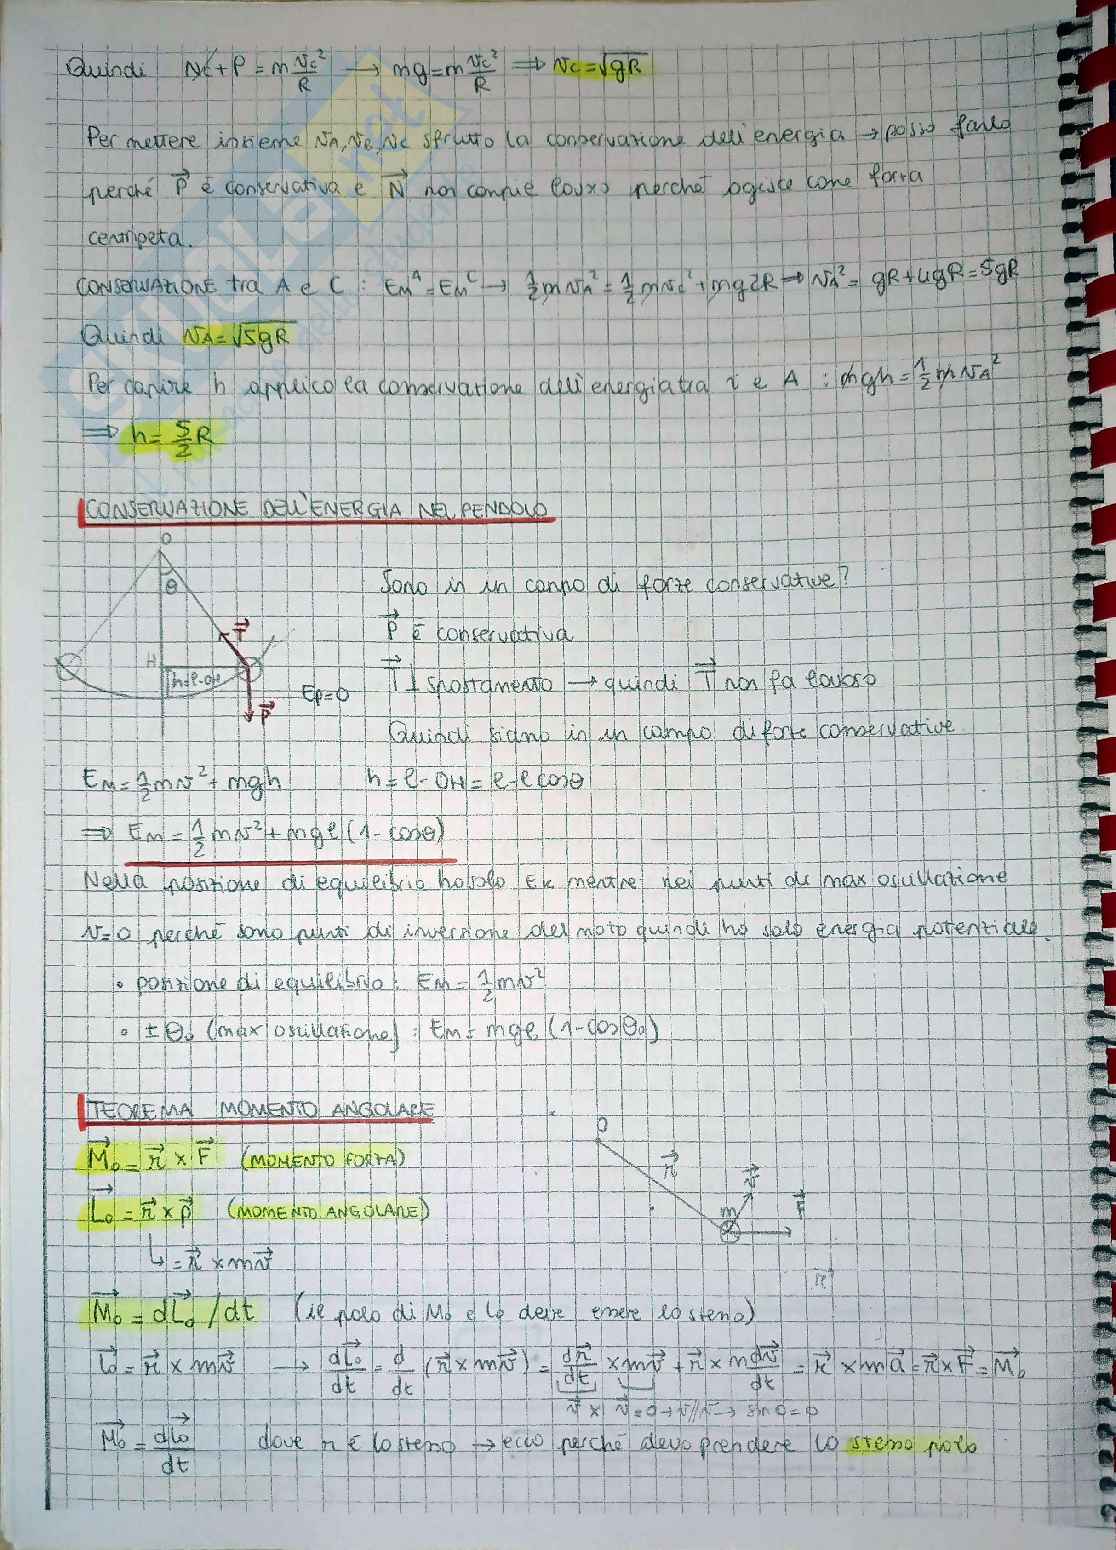 Quindi N̸c + P = m vc²/R → mg = m vc²/R ⇒ vc = √gR
Per mettere insieme vA, vB, vC sfrutto la conservazione dell'energia → posso farlo
perché P⃗ è conservativa e N⃗ non compie lavoro perché agisce come forza
centripeta.
CONSERVAZIONE tra A e C : EMᴬ = EMᶜ → 1/2 m vA² = 1/2 m vc² + mg2R → vA² = gR + 4gR = 5gR
Quindi vA = √5gR
Per capire h applico la conservazione dell'energia tra i e A : mgh = 1/2 m vA²
⇒ h = 5/2 R
CONSERVAZIONE DELL'ENERGIA NEL PENDOLO
O
θ
Sono in un campo di forze conservative?
T⃗
P⃗ è conservativa
H
h=l-OH
T⃗ ⊥ spostamento → quindi T⃗ non fa lavoro
Ep=0
P⃗
Quindi siamo in un campo di forze conservative
EM = 1/2 mv² + mgh h = l - OH = l - l cosθ
⇒ EM = 1/2 mv² + mgl (1 - cosθ)
Nella posizione di equilibrio ho solo Ek mentre nei punti di max oscillazione
v=0 perché sono punti di inversione del moto quindi ho solo energia potenziale.
• posizione di equilibrio: EM = 1/2 mv²
• ±θ₀ (max oscillazione) : EM = mgl (1-cosθ₀)
TEOREMA MOMENTO ANGOLARE
O
M⃗₀ = r⃗ × F⃗ (MOMENTO FORZA)
r⃗
v⃗
L⃗₀ = r⃗ × p⃗ (MOMENTO ANGOLARE)
m
F⃗
↳ = r⃗ × mv⃗
M⃗₀ = dL⃗₀ / dt (il polo di M₀ e L₀ deve essere lo stesso)
L⃗₀ = r⃗ × mv⃗ → dL⃗₀/dt = d/dt (r⃗ × mv⃗) = dr⃗/dt × mv⃗ + r⃗ × m dv⃗/dt = r⃗ × ma⃗ = r⃗ × F⃗ = M⃗₀
v⃗ × v⃗ = 0 → v//v → sin0 = 0
M⃗₀ = dL⃗₀/dt dove r è lo stesso → ecco perché devo prendere lo stesso polo